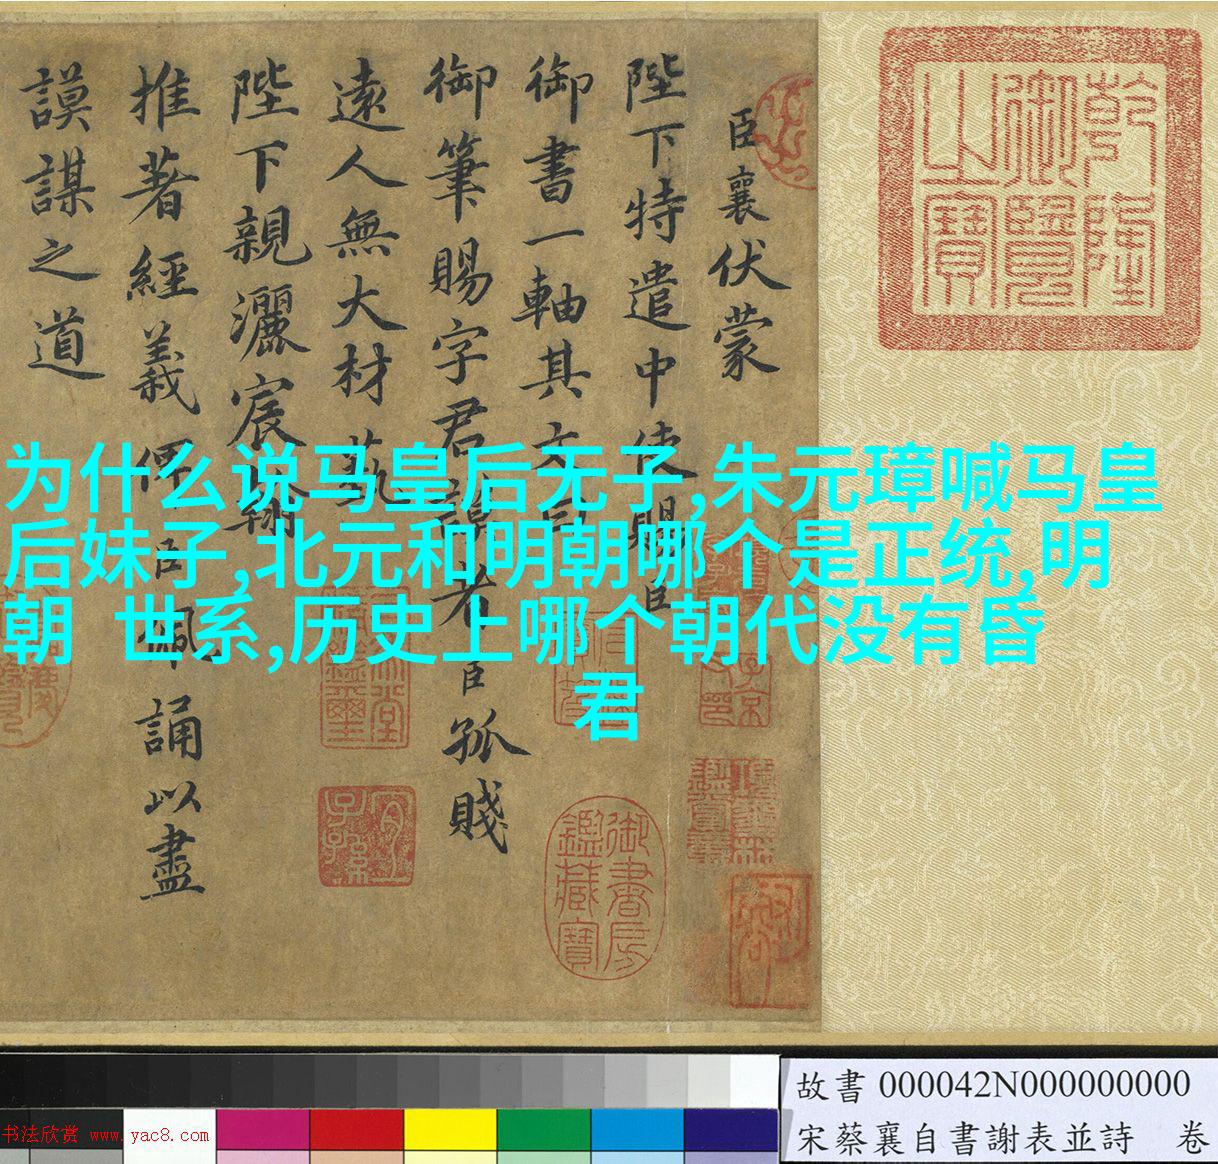 乾隆
御覽
之寶
臣襄伏蒙
陛下特遣中使賜臣
御書一軸其文曰
御筆賜字君謨者臣孤賤
遠人無大材藝
陛下親灑宸翰
推著經義俾臣佩誦以盡
謨謀之道
为什么说马皇后无子,朱元璋喊马皇
后妹子,北元和明朝哪个是正统,明
朝 世系,历史上哪个朝代没有昏
君
御書房
鑑藏寶
宜
子孫
故書 000042N000000000
宋蔡襄自書謝表並詩 卷
书法欣赏 www.yac8.com